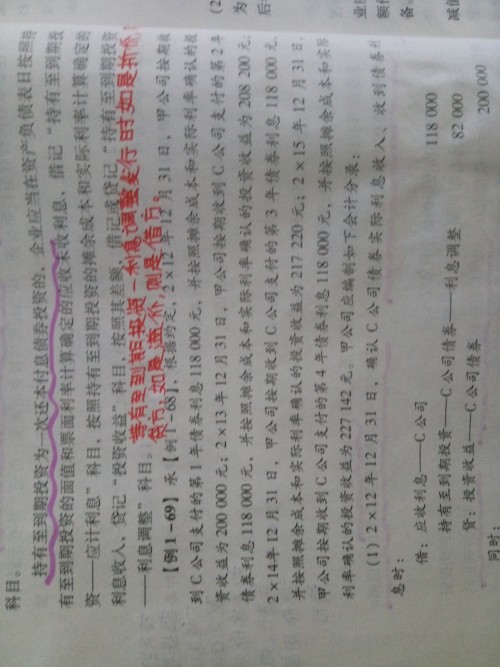 科目。
持有至到期投资为一次还本付息债券投资的，企业应当在资产负债表日按照持
有至到期投资的面值和票面利率计算确定的应收未收利息，借记“持有至到期投
资——应计利息”科目，按照持有至到期投资的摊余成本和实际利率计算确定的
利息收入，贷记“投资收益”科目，按照其差额，借记或贷记“持有至到期投资
——利息调整”科目。
持有至到期投资-利息调整发行时如是折价，
贷方，如是溢价，则是借方。
【例1-69】承【例1-68】，根据约定，2×12年12月31日，甲公司按期收
到C公司支付的第1年债券利息118 000元，并按照摊余成本和实际利率确认的投
资收益为200 000元；2×13年12月31日，甲公司按期收到C公司支付的第2年
债券利息118 000元，并按照摊余成本和实际利率确认的投资收益为208 200元；
2×14年12月31日，甲公司按期收到C公司支付的第3年债券利息118 000元，
并按照摊余成本和实际利率确认的投资收益为217 220元；2×15年12月31日，
甲公司按期收到C公司支付的第4年债券利息118 000元，并按照摊余成本和实际
利率确认的投资收益为227 142元。甲公司应编制如下会计分录：
（1）2×12年12月31日，确认C公司债券实际利息收入、收到债券利
息时：
借：应收利息——C公司 118 000
持有至到期投资——C公司债券——利息调整 82 000
贷：投资收益——C公司债券 200 000
同时：